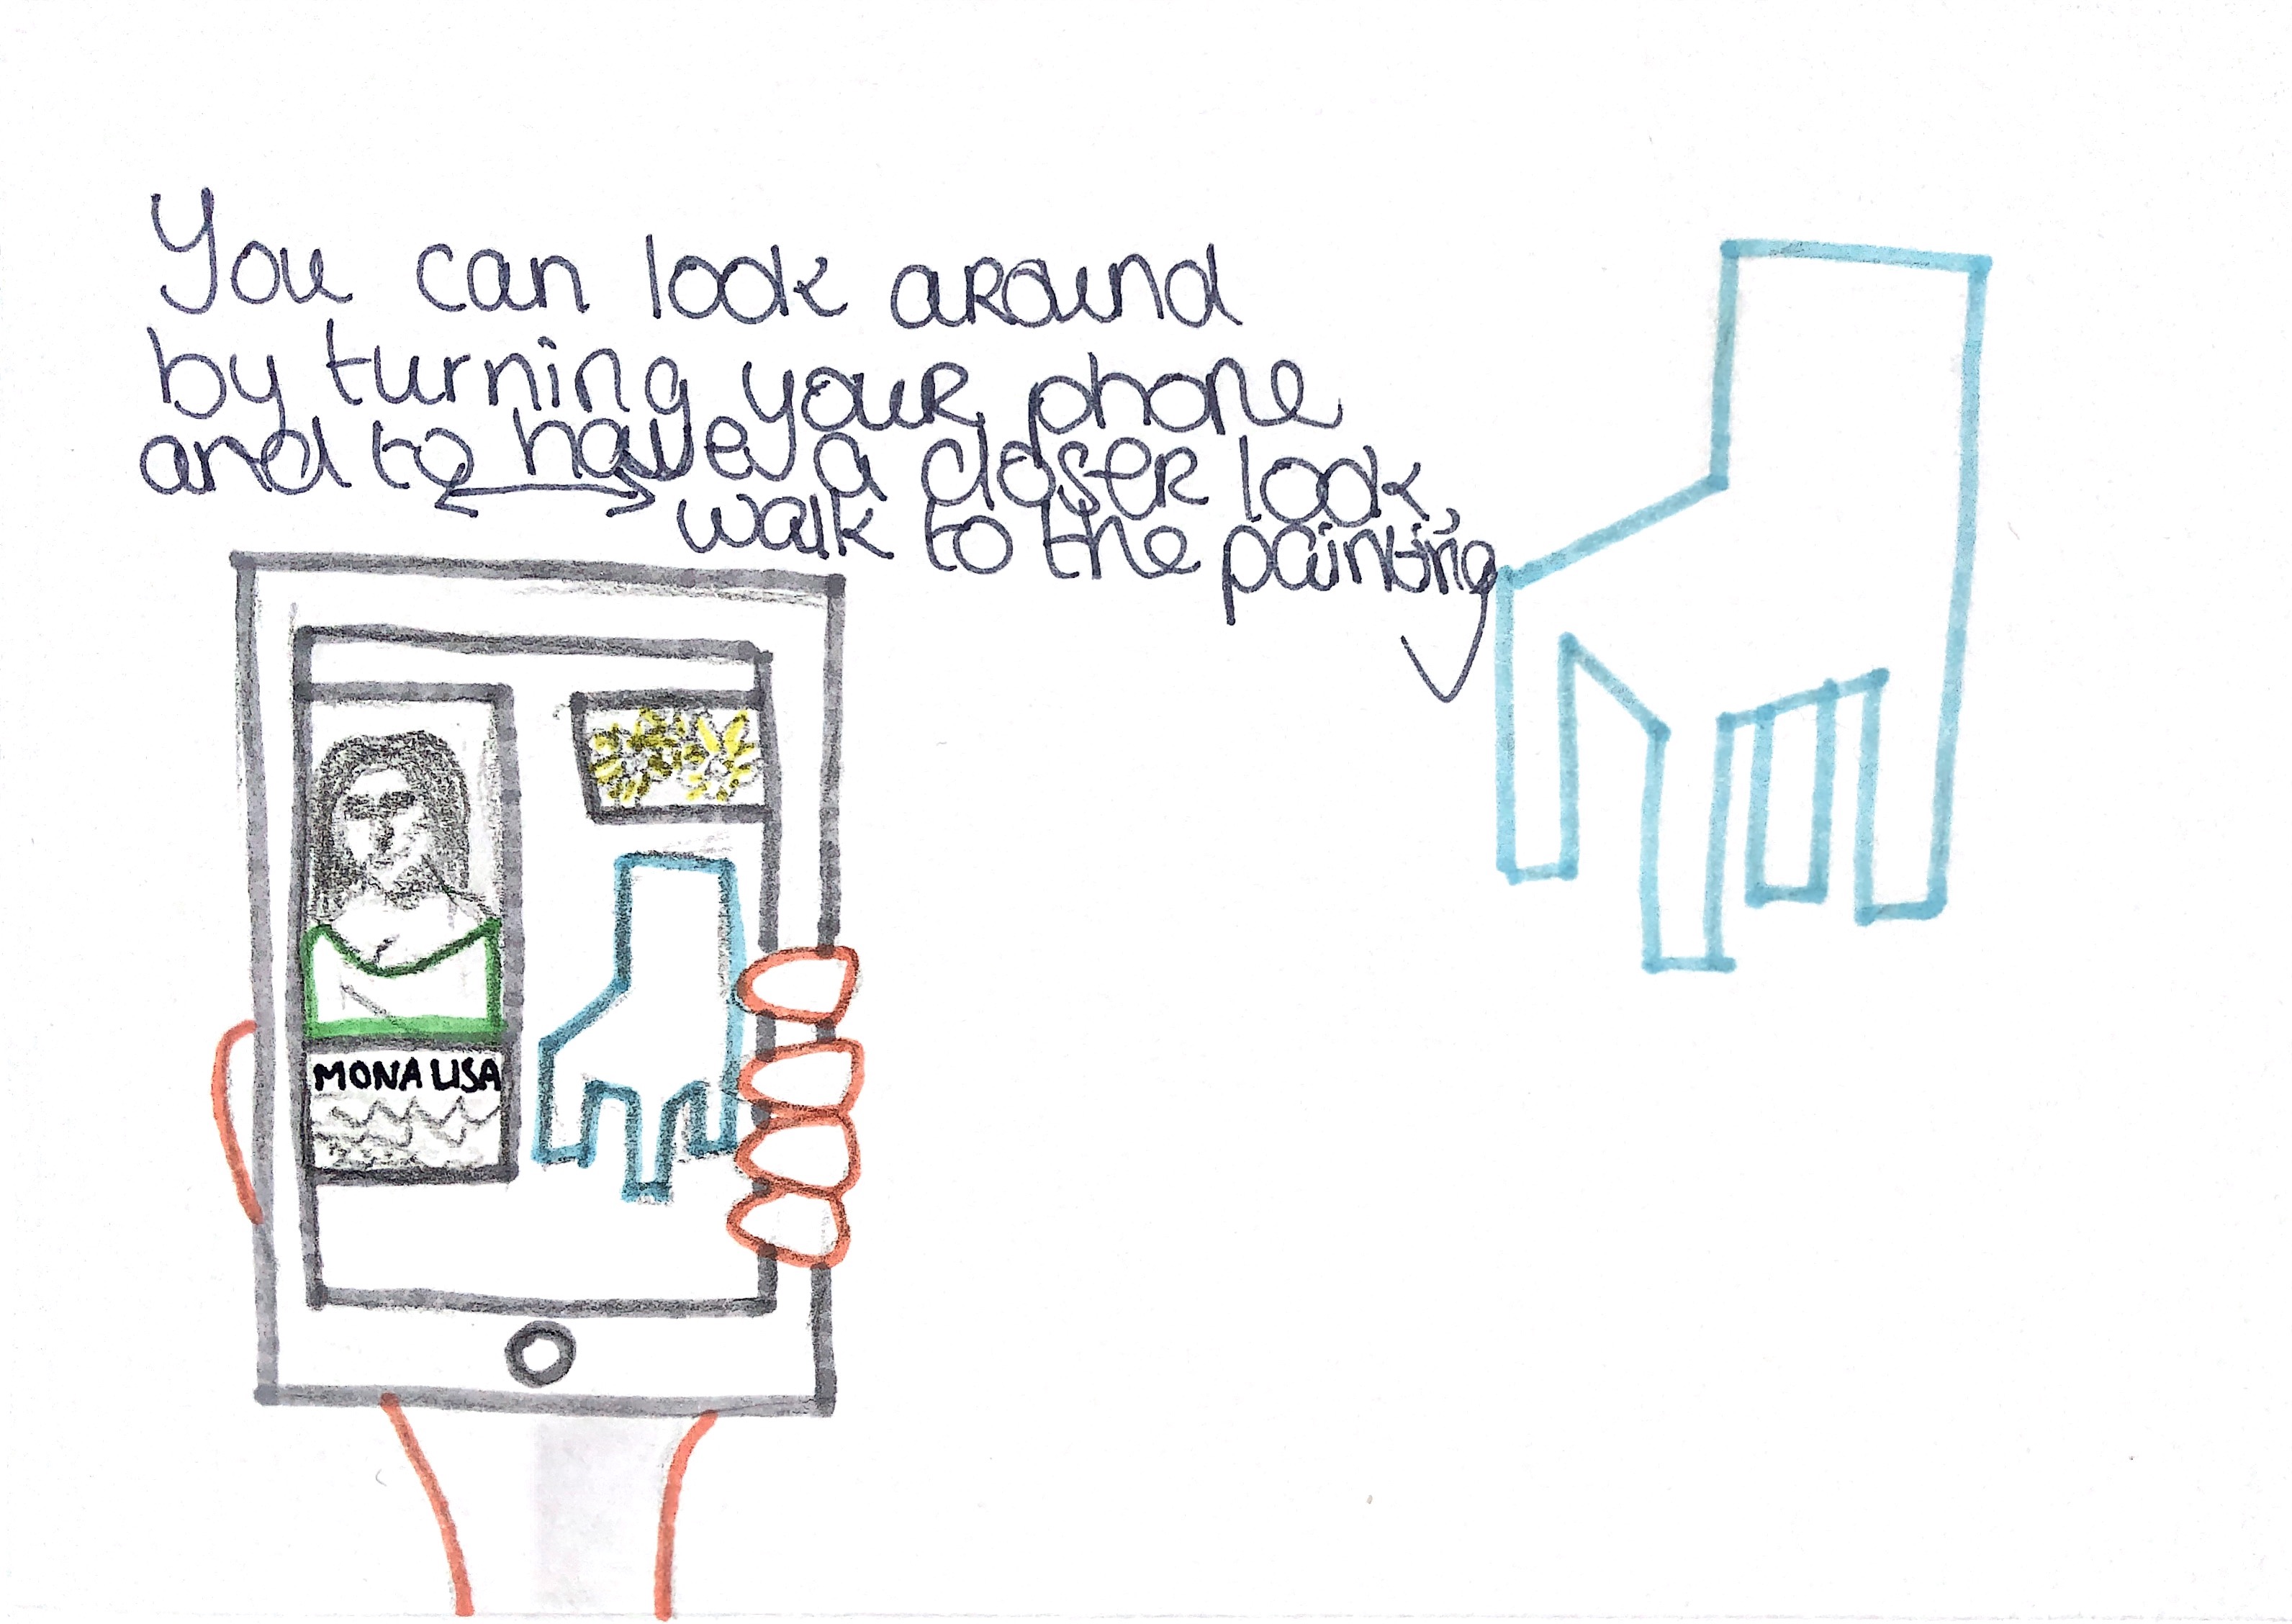 You can look around
by turning your phone
and to have a closer look,
walk to the painting
MONA LISA